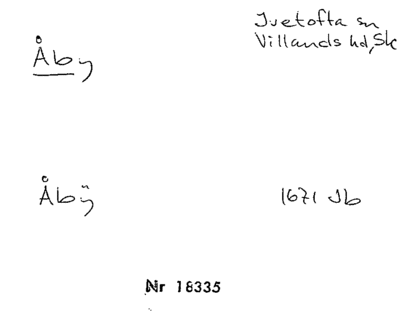 Ivetofta sn
Villands hd, Sk
Åby
Åbÿ
1671 Jb
Nr 18335